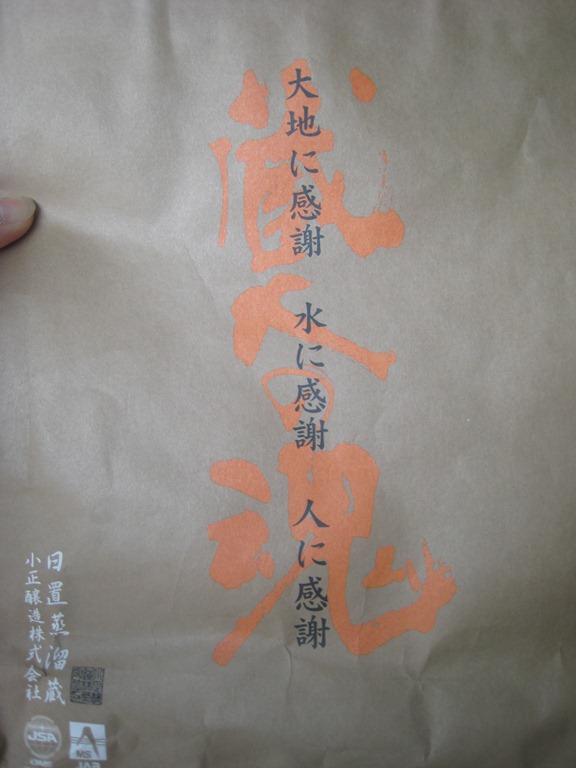 大地に感謝 水に感謝 人に感謝
蔵人の魂
日置蒸溜蔵
小正醸造株式会社
JSA
MS
JAB